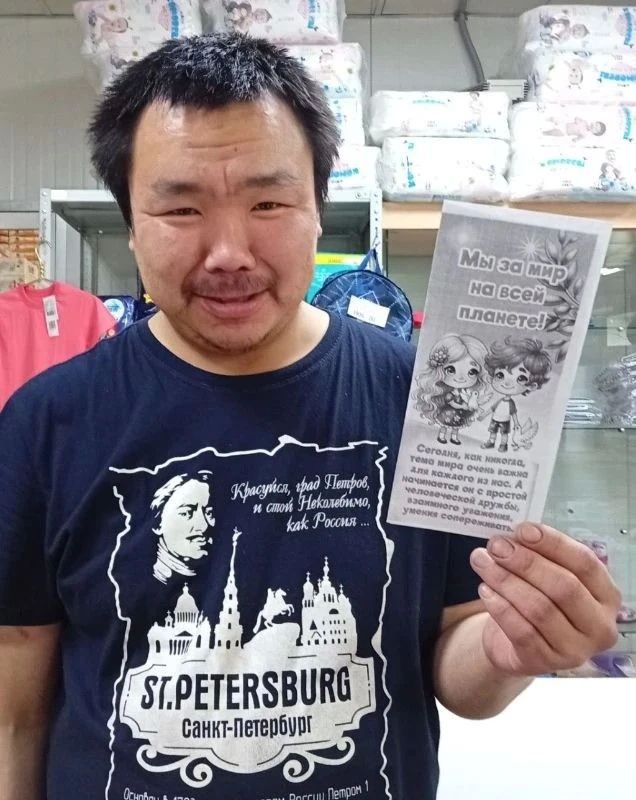 Мы за мир
на всей
планете!
Сегодня, как никогда,
тема мира очень важна
для каждого из нас. А
начинается он с простой
человеческой дружбы,
взаимного уважения,
умения сопереживать.
Красуйся, град Петров,
и стой Неколебимо,
как Россия ...
ST.PETERSBURG
Санкт-Петербург
России Петром 1